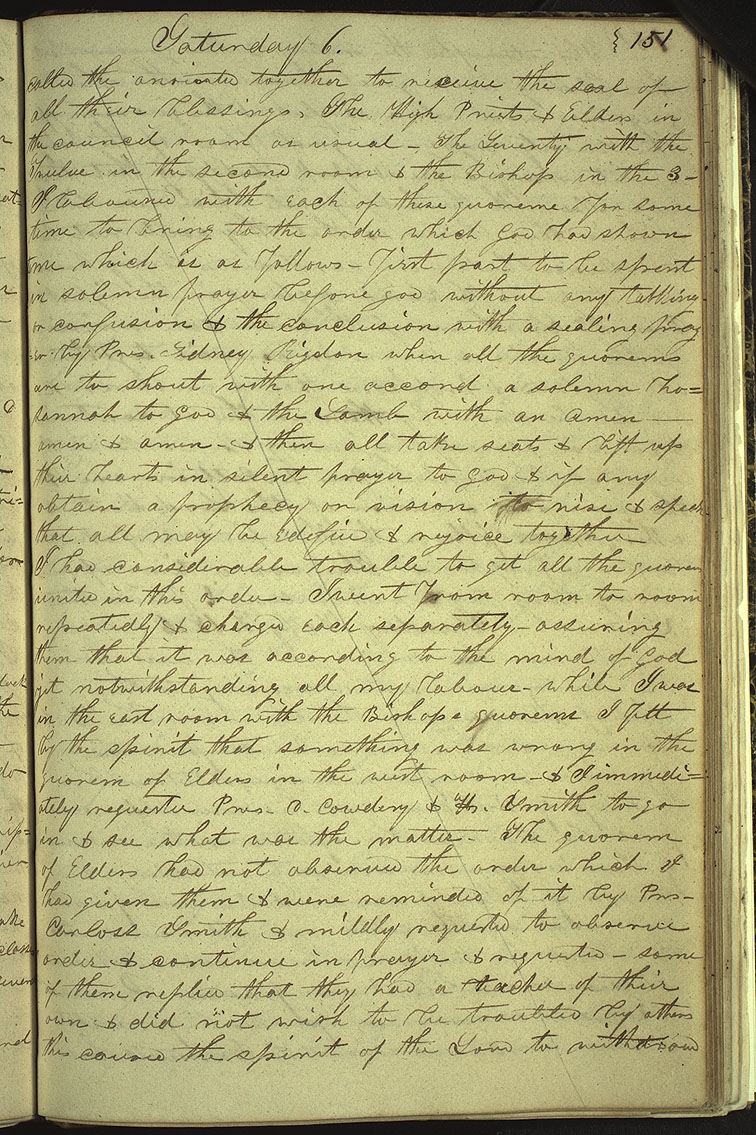 Saturday 6. 151
called the anointed together to receive the seal of
all their blessings, The High Priests & Elders in
the council room as usual – The Seventy with the
Twelve in the second room & the Bishop in the 3–
I laboured with each of these quorems for some
time to bring to the order which God had shown
me which is as follows – first part to be spent
in solemn prayer before god without any talking
or confusion & the conclusion with a sealing pray
er by Pres. Sidney Rigdon when all the quorems
are to shout with one accord a solemn ho=
sannah to God & the Lamb with an amen –
amen & amen – & then all take seats & lift up
their hearts in silent prayer to God & if any
obtain a prophecy or vision to rise & speak
that all may be edified & rejoice together
I had considerable trouble to get all the quorems
united in this order – I went from room to room
repeatedly & charged each separately – assuring
them that it was according to the mind of God
yet notwithstanding all my labour – while I was
in the east room with the Bishops quorems I felt
by the spirit that something was wrong in the
quorem of Elders in the west room – & I immedi=
ately requested Pres. O. Cowdery & H. Smith to go
in & see what was the matter – The quorem
of Elders had not observed the order which I
had given them & were reminded of it by Pres–
Carloss Smith & mildly requested to observe
order & continue in prayer & requested – some
of them replied that they had a teacher of their
own & did not wish to be troubled by others
this caused the spirit of the Lord to withdraw